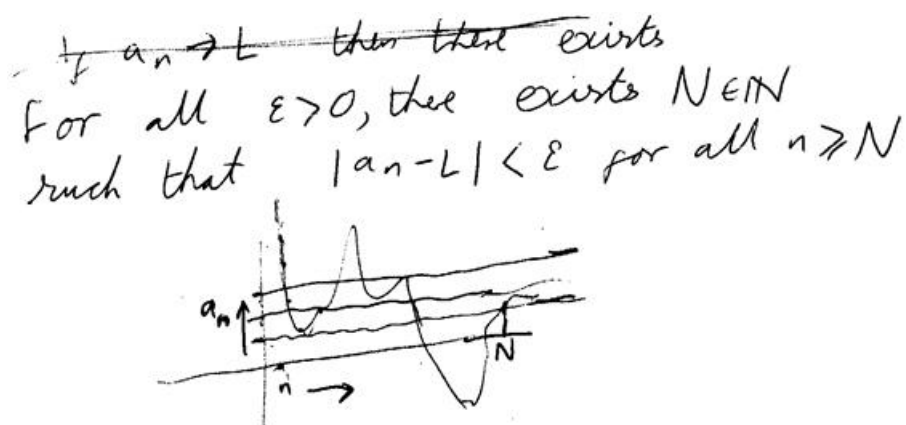 If aₙ → L then there exists
For all ε>0, there exists N∈ℕ
such that |aₙ-L| < ε for all n ≥ N
aₙ
N
n